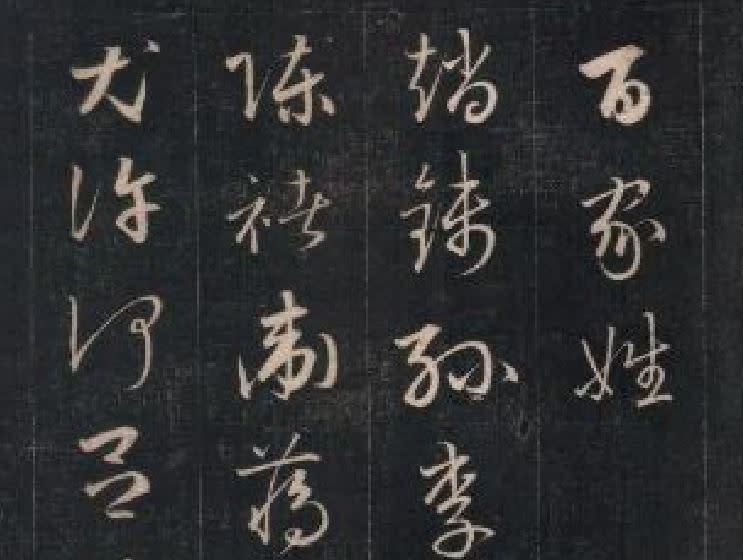 百家姓
趙錢孫李
陳褚衛蔣
尤許何呂